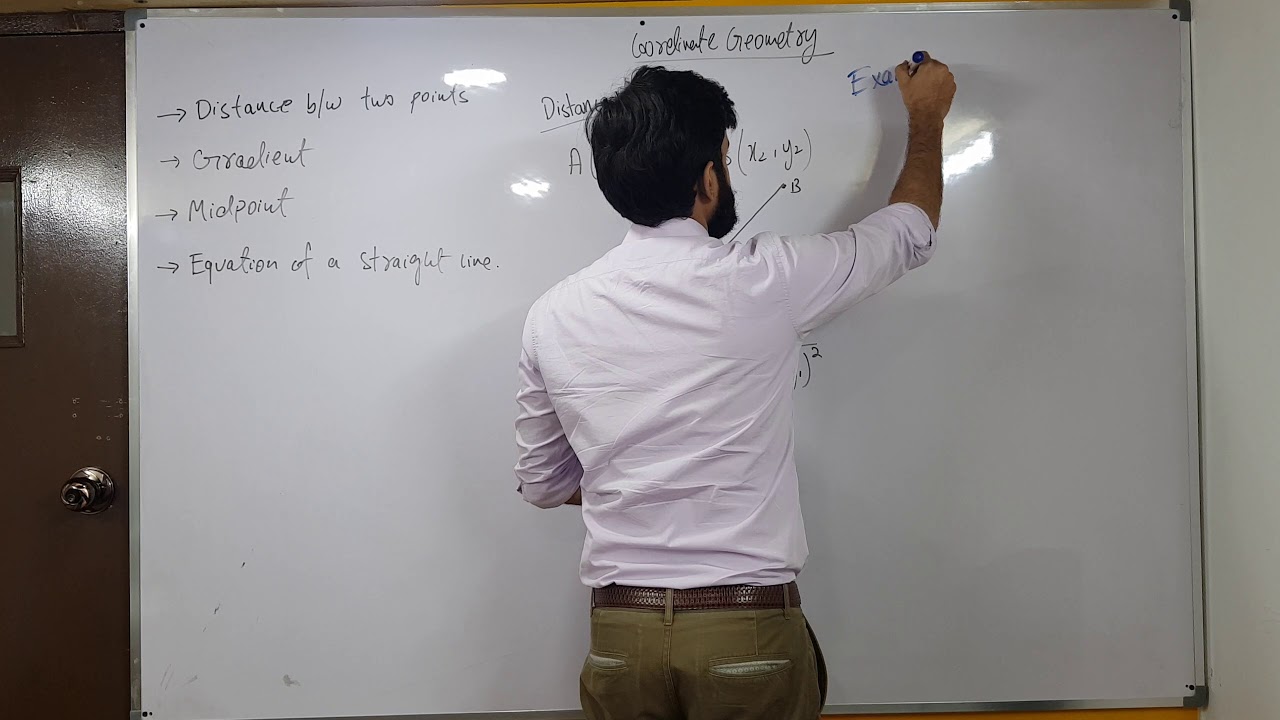 Coordinate Geometry
→ Distance b/w two points
→ Gradient
→ Midpoint
→ Equation of a straight line.
A( (x₂, y₂)
B
)²
Exa